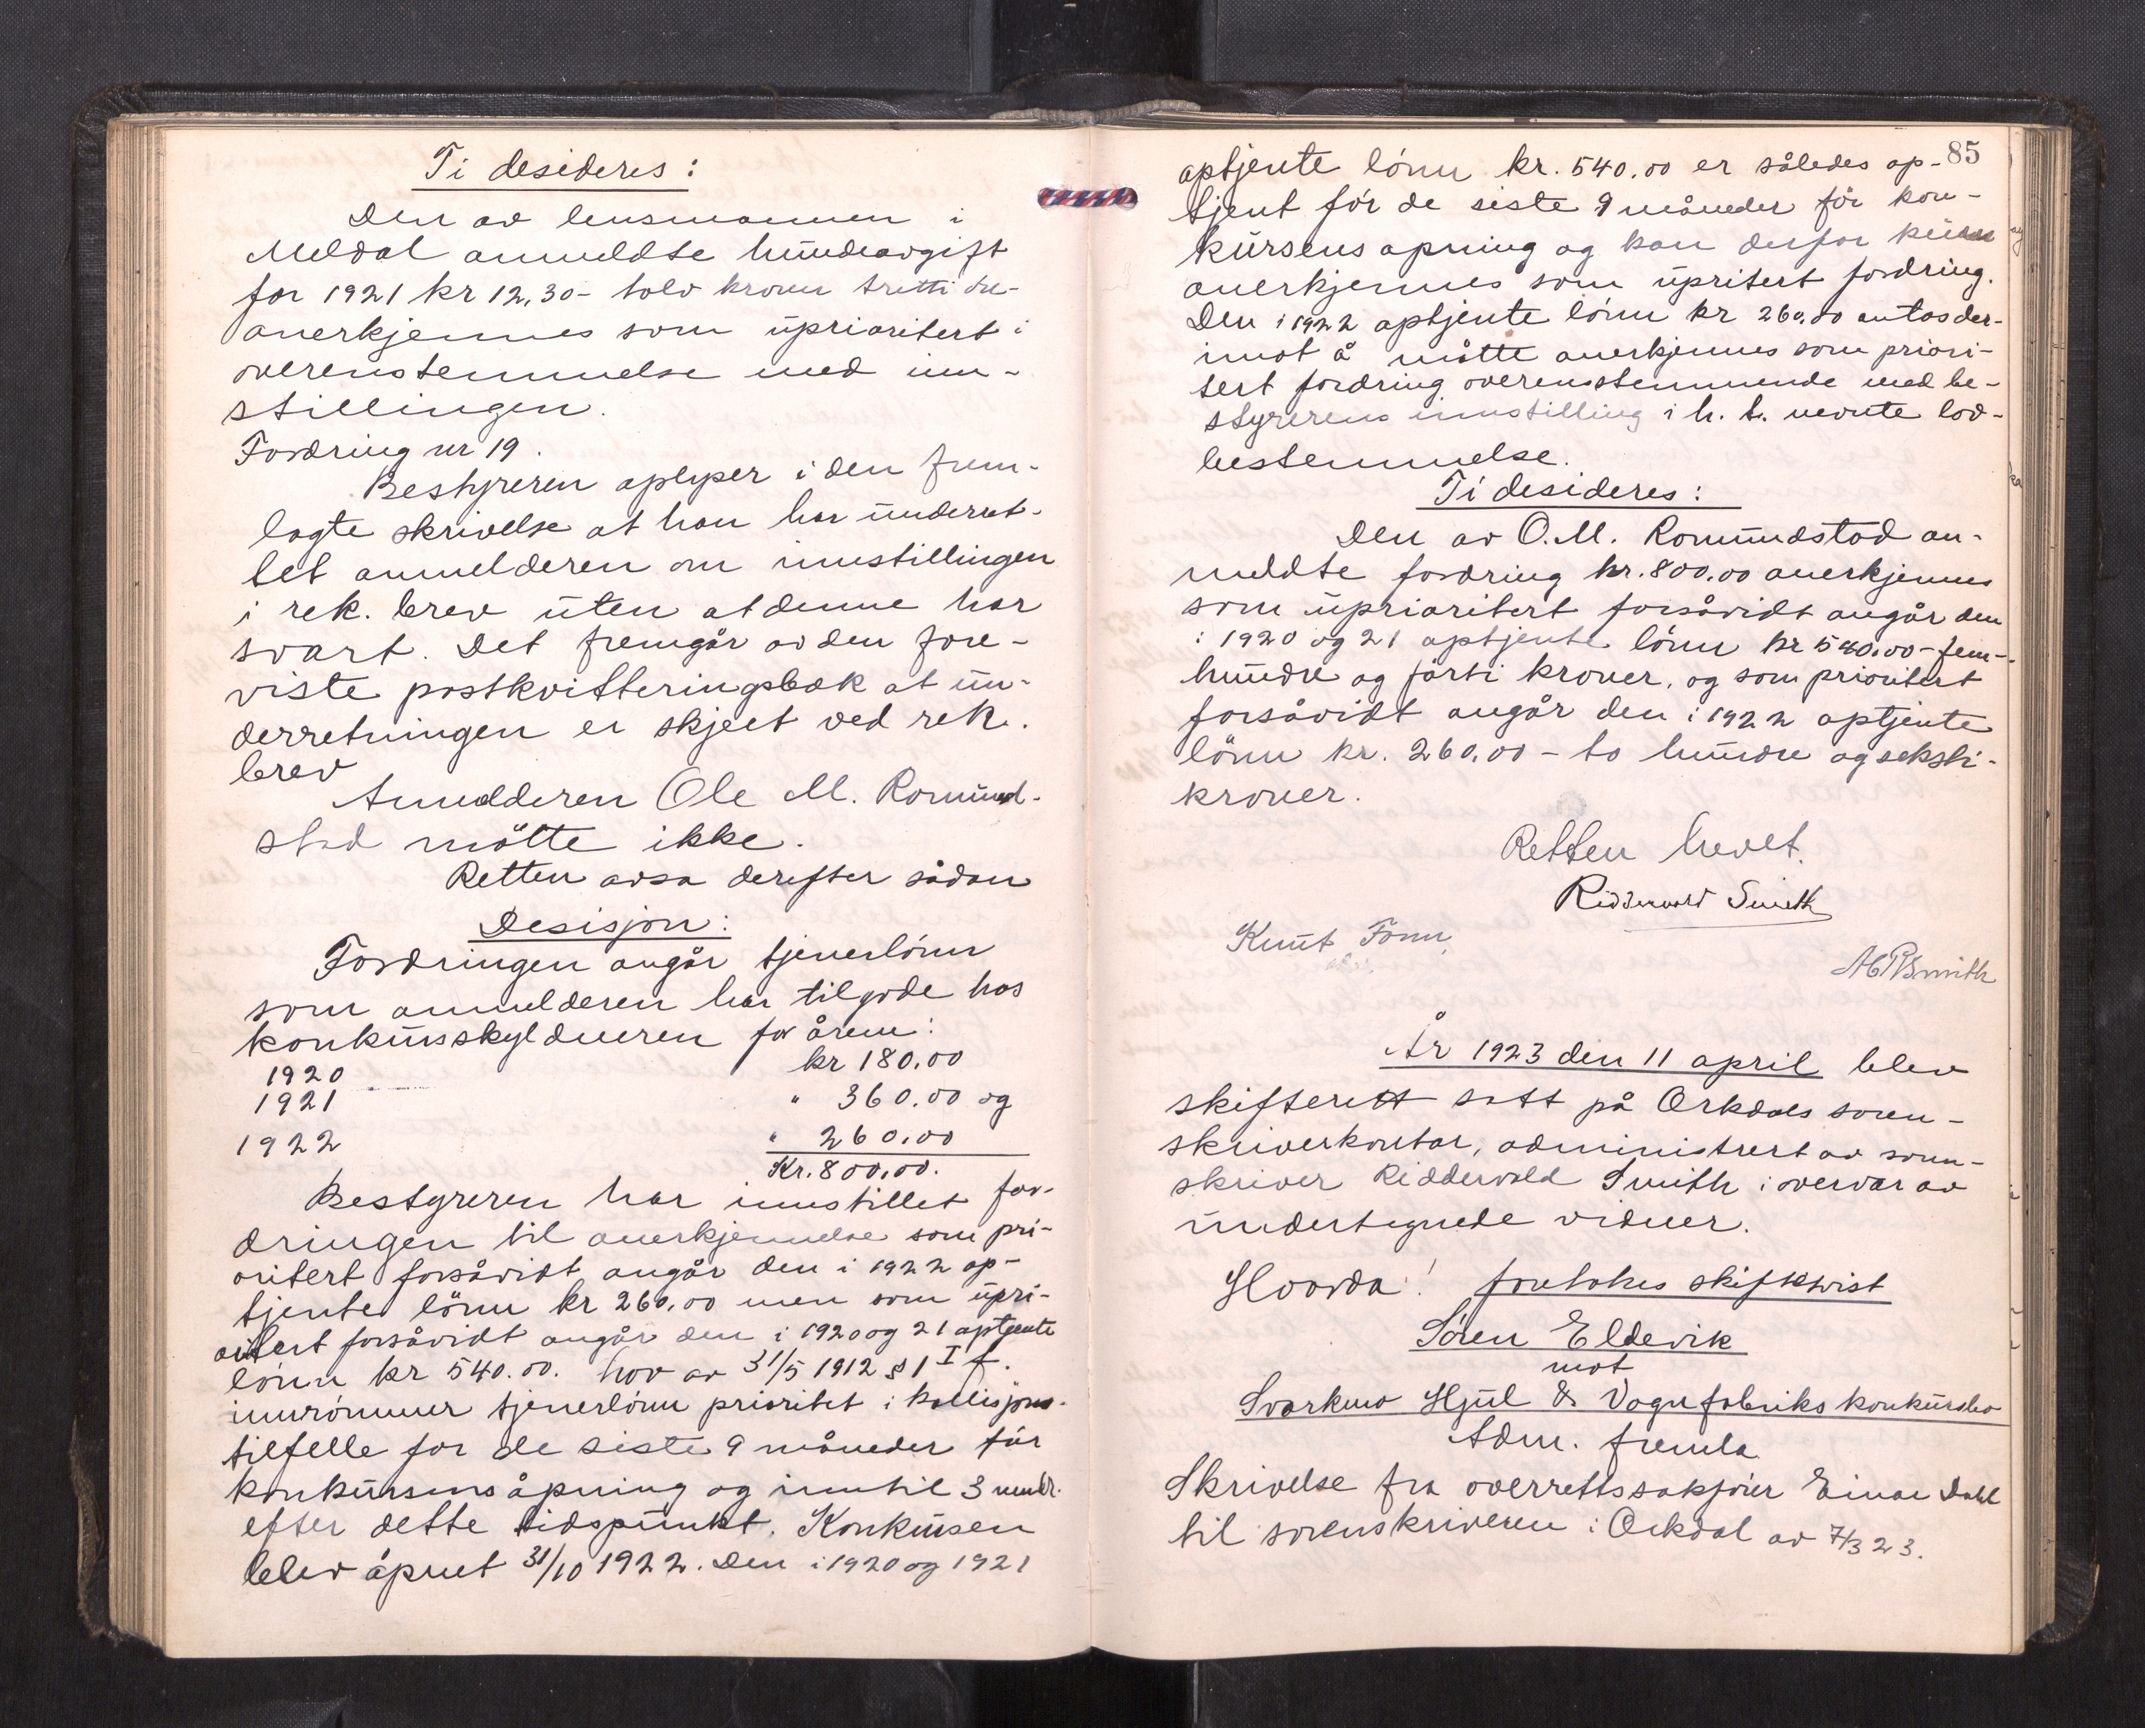 Ti desideres:
Den av lensmannen i
Meldal anmeldte hundeavgift
for 1921 kr 12,30 - tolv kroner tretti øre -
anerkjennes som uprioritert i
overensstemmelse med inn-
stillingen.
Fordring nr 19.
Bestyreren oplyser i den frem-
lagte skrivelse at han har underret-
tet anmelderen om innstillingen
i rek. brev uten at denne har
svart. Det fremgår av den fore-
viste postkvitteringsbok at un-
derretningen er skjeet ved rek.
brev
Anmelderen Ole M. Romund-
stad møtte ikke.
Retten avsa derefter sådan
Desisjon:
Fordringen angår tjenerlønn
som anmelderen har tilgode hos
konkursskyldneren for årene:
1920 kr 180.00
1921 " 360.00 og
1922 " 260.00
Kr. 800.00.
Bestyreren har innstillet for-
dringen til anerkjennelse som pri-
oritert forsåvidt angår den i 1922 op-
tjente lønn kr 260.00 men som upri-
oritert forsåvidt angår den i 1920 og 21 optjente
lønn kr 540.00. Lov av 31/5 1912 § 1 I f.
innrømmer tjenerlønn prioritet i kollisjons-
tilfelle for de siste 9 måneder før
konkursens åpning og inntil 3 mndr.
efter dette tidspunkt. Konkursen
blev åpnet 31/10 1922. Den i 1920 og 1921
85
optjente lønn kr. 540.00 er således op-
tjent før de siste 9 måneder før kon-
kursens åpning og kan derfor kun
anerkjennes som upritert fordring.
Den i 1922 optjente lønn kr 260.00 antas der-
imot å måtte anerkjennes som priori-
tert fordring overensstemmende med be-
styrerens innstilling i h. t. nevnte lov-
bestemmelse.
Ti desideres:
Den av O.M. Romundstad an-
meldte fordring kr. 800.00 anerkjennes
som uprioritert forsåvidt angår den
i 1920 og 21 optjente lønn kr 540.00 - fem-
hundre og førti kroner, og som prioritert
forsåvidt angår den i 1922 optjente
lønn kr. 260.00 - to hundre og seksti-
kroner.
Retten hevet.
Riddervold Smith
Knut Fonn
År 1923 den 11 april blev
skifterett satt på Orkdals soren-
skriverkontor, administrert av soren-
skriver Riddervold Smith i overvær av
undertegnede vidner.
Hvorda! foretokes skiftetvist
Søren Eldevik
mot
Svorkmo Hjul & Vognfabriks konkursbo
Adm. fremla
Skrivelse fra overrettssakfører Einar Dahl
til sorenskriveren i Orkdal av 7/3 23.